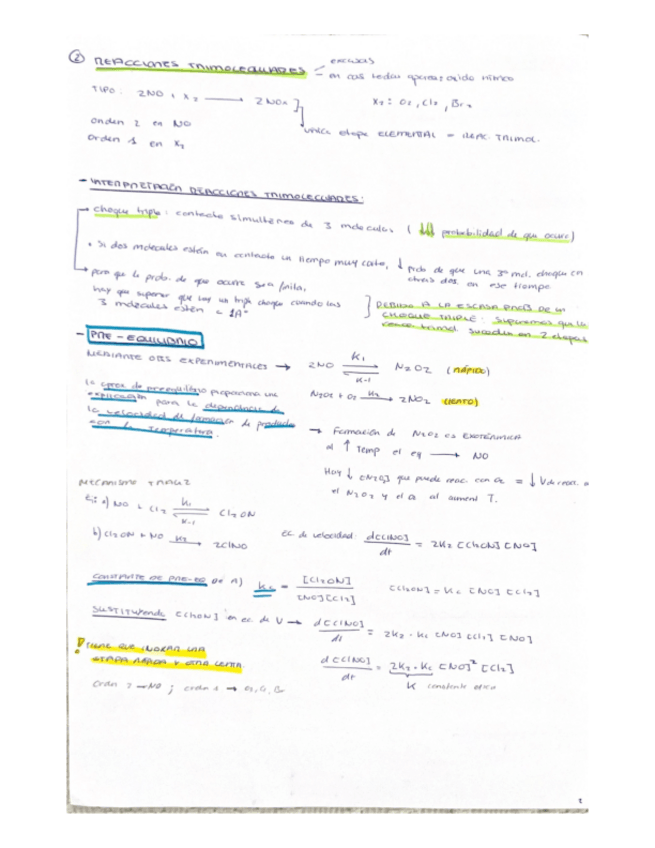 ② REACCIONES TRIMOLECULARES
escasas
en casi todas aparece óxido nítrico
TIPO: 2NO + X₂ ⟶ 2NOX
X₂: O₂, Cl₂, Br₂
Orden 2 en NO
Orden 1 en X₂
única etapa ELEMENTAL = REAC. TRIMOL.
- INTERPRETACIÓN REACCIONES TRIMOLECULARES:
choque triple: contacto simultáneo de 3 moléculas ( ↓↓↓ probabilidad de que ocurra)
• Si dos moléculas están en contacto un tiempo muy corto, ↓ prob de que una 3ª mol. choque con
otras dos en ese tiempo
para que la prob. de que ocurre sea finita,
hay que suponer que hay un triple choque cuando las
3 moléculas estén a 1A°
DEBIDO A LA ESCASA PROB DE un
CHOQUE TRIPLE: Suponemos que la
reacc trimol. suceden en 2 etapas
- PRE-EQUILIBRIO
MEDIANTE OBS EXPERIMENTALES → 2NO K₁ ⇌ K-1 N₂O₂ (RÁPIDO)
N₂O₂ + O₂ K₂ ⟶ 2NO₂ (LENTO)
la aprox de preequilibrio proporciona una
explicación para la dependencia de
la velocidad de formación de producto
con la temperatura.
→ Formación de N₂O₂ es EXOTÉRMICA
al ↑ Temp el eq ⟶ NO
Hay ↓ [N₂O₂] que puede reac. con O₂ = ↓ V de reacc.
el N₂O₂ y el O₂ al aument T.
MECANISMO
Ej: a) NO + Cl₂ K₁ ⇌ K-1 Cl₂ON
b) Cl₂ON + NO K₂ ⟶ 2ClNO
Ec. de velocidad: d[ClNO]/dt = 2K₂ [Cl₂ON] [NO]
CONSTANTE DE PRE-EQ DE A) Kc = [Cl₂ON]/[NO][Cl₂]
[Cl₂ON] = Kc [NO] [Cl₂]
SUSTITUYENDO [Cl₂ON] en ec. de V → d[ClNO]/dt = 2K₂ · Kc [NO] [Cl₂] [NO]
! TIENE QUE HABER UNA
ETAPA RÁPIDA Y OTRA LENTA.
d[ClNO]/dt = 2K₂ · Kc [NO]² [Cl₂]
K constante
Orden 2 → NO ; orden 1 → O₂, Cl, Br